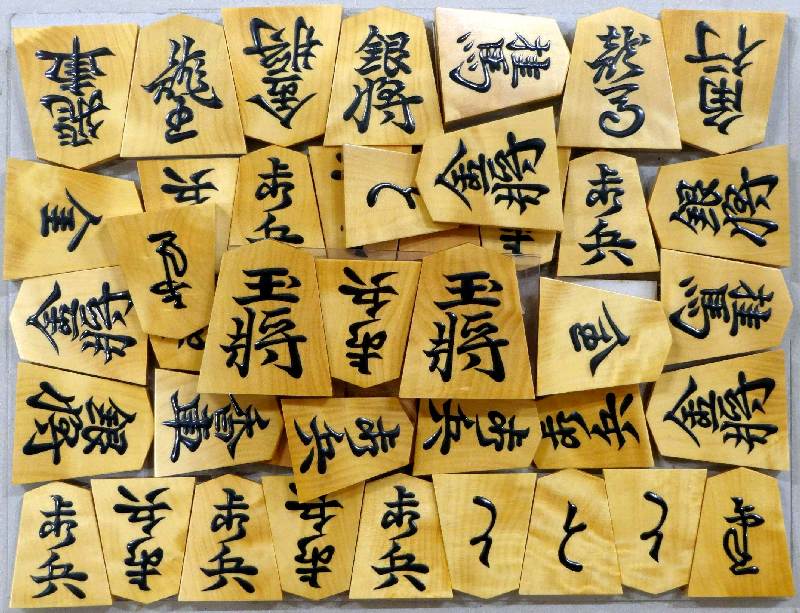 飛車
龍王
金将
銀将
桂馬
龍馬
角行
歩兵
歩兵
と
金将
歩兵
銀将
金将
玉将
歩兵
玉将
桂馬
銀将
香車
歩兵
歩兵
歩兵
金将
歩兵
歩兵
歩兵
歩兵
歩兵
と
と
と